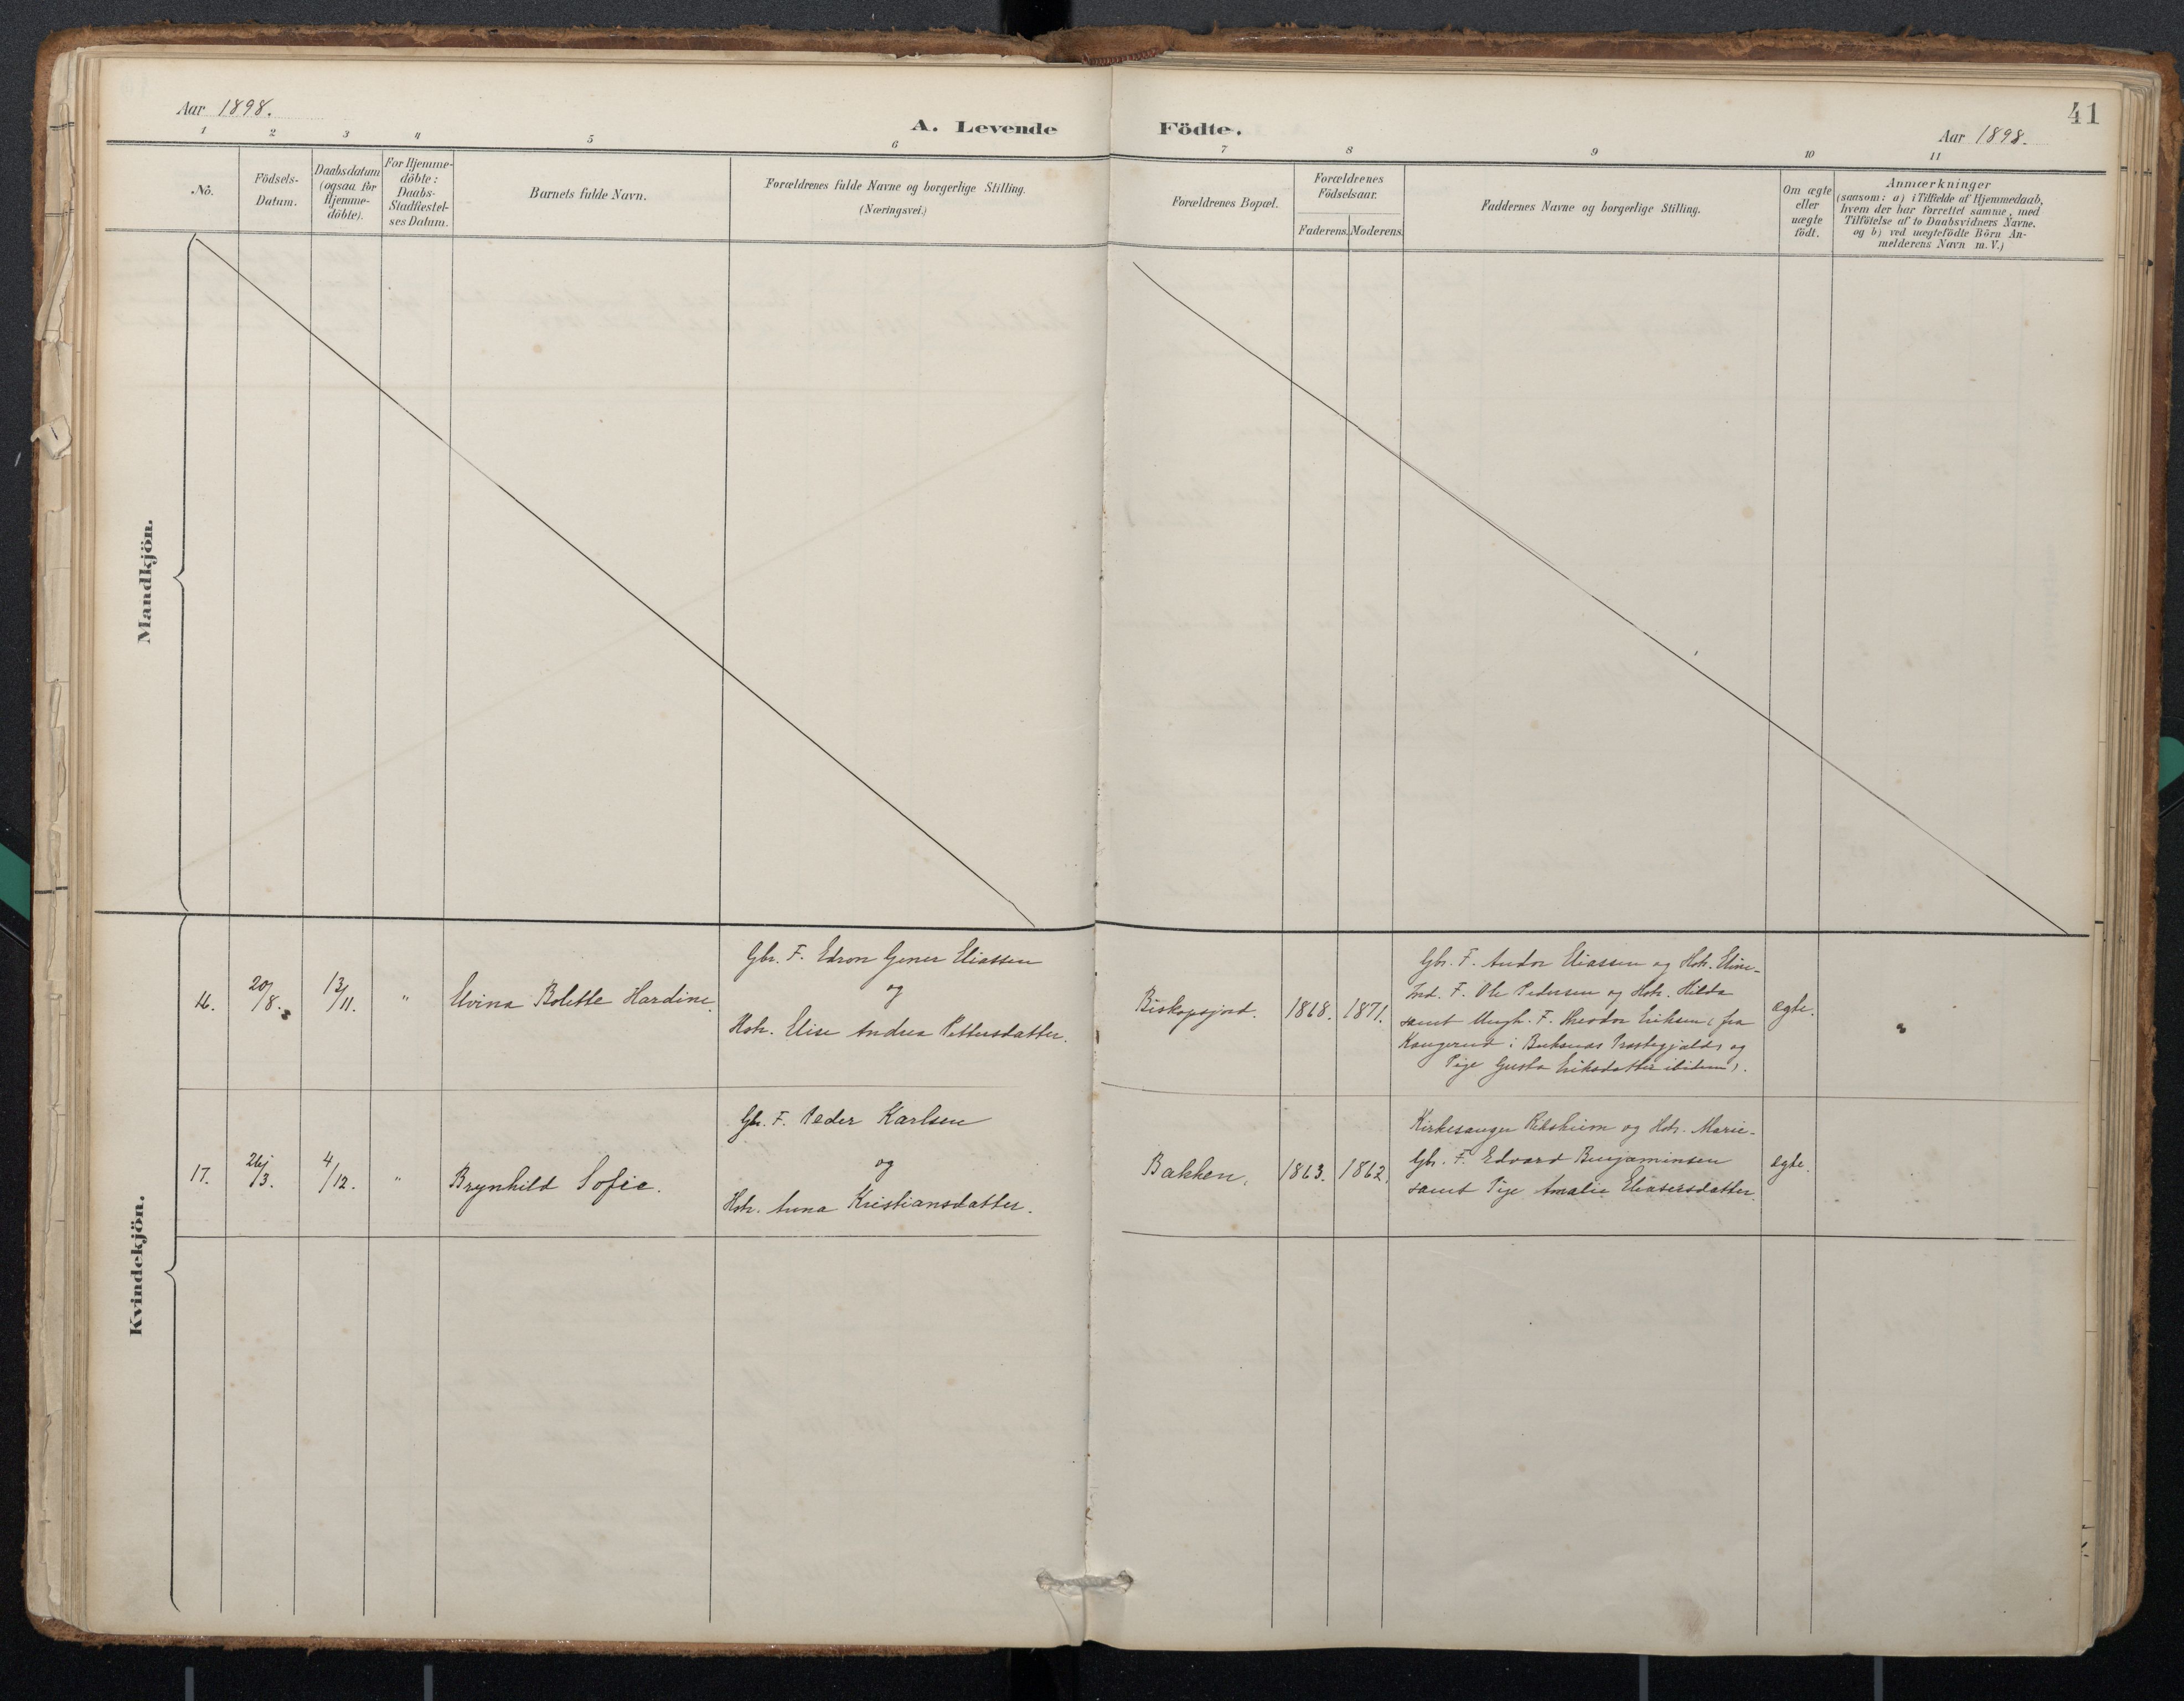 Aar 1898.
A. Levende Födte.
41
Aar 1898.
1 2 3 4 5 6 7 8 9 10 11
No.
Födsels-
Datum.
Daabsdatum
(ogsaa for
Hjemme-
döbte).
For Hjemme-
döbte:
Daabs-
Stadfæstel-
ses Datum.
Barnets fulde Navn.
Forældrenes fulde Navne og borgerlige Stilling.
(Næringsvei.)
Forældrenes Bopæl.
Forældrenes
Födselsaar.
Faderens. Moderens.
Faddernes Navne og borgerlige Stilling.
Om ægte
eller
uægte
födt.
Anmærkninger
(saasom: a) i Tilfælde af Hjemmedaab,
hvem der har forrettet samme, med
Tilföielse af to Daabsvidners Navne.
og b) ved uægtefödte Börn An-
melderens Navn m. V.)
Mandkjön.
Kvindekjön.
16.
20/8.
13/11.
"
Elvina Bolette Hardine.
Gbr. F. Edron Gener Eliassen
og
Hstr. Elise Andrea Pettersdatter.
Biskopsjord.
1868.
1871.
Gbr. F. Andor Eliassen og Hstr. Eline-
Ind. F. Ole Pedersen og Hstr. Hilda
samt Ungk. F. Theodor Eriksen (fra
i Buksnes Prestegjæld) og
Pige Gusta Eriksdatter ibidem).
ægte.
17.
26/3.
4/12.
"
Brynhild Sofie.
Gbr. F. Peder Karlsen
og
Hstr. Anna Kristiansdatter.
Bakken.
1863.
1862.
Kirkesanger og Hstr. Marie-
Gbr. F. Edvard Benjaminsen
samt Pige Amalie Eliasersdatter.
ægte.